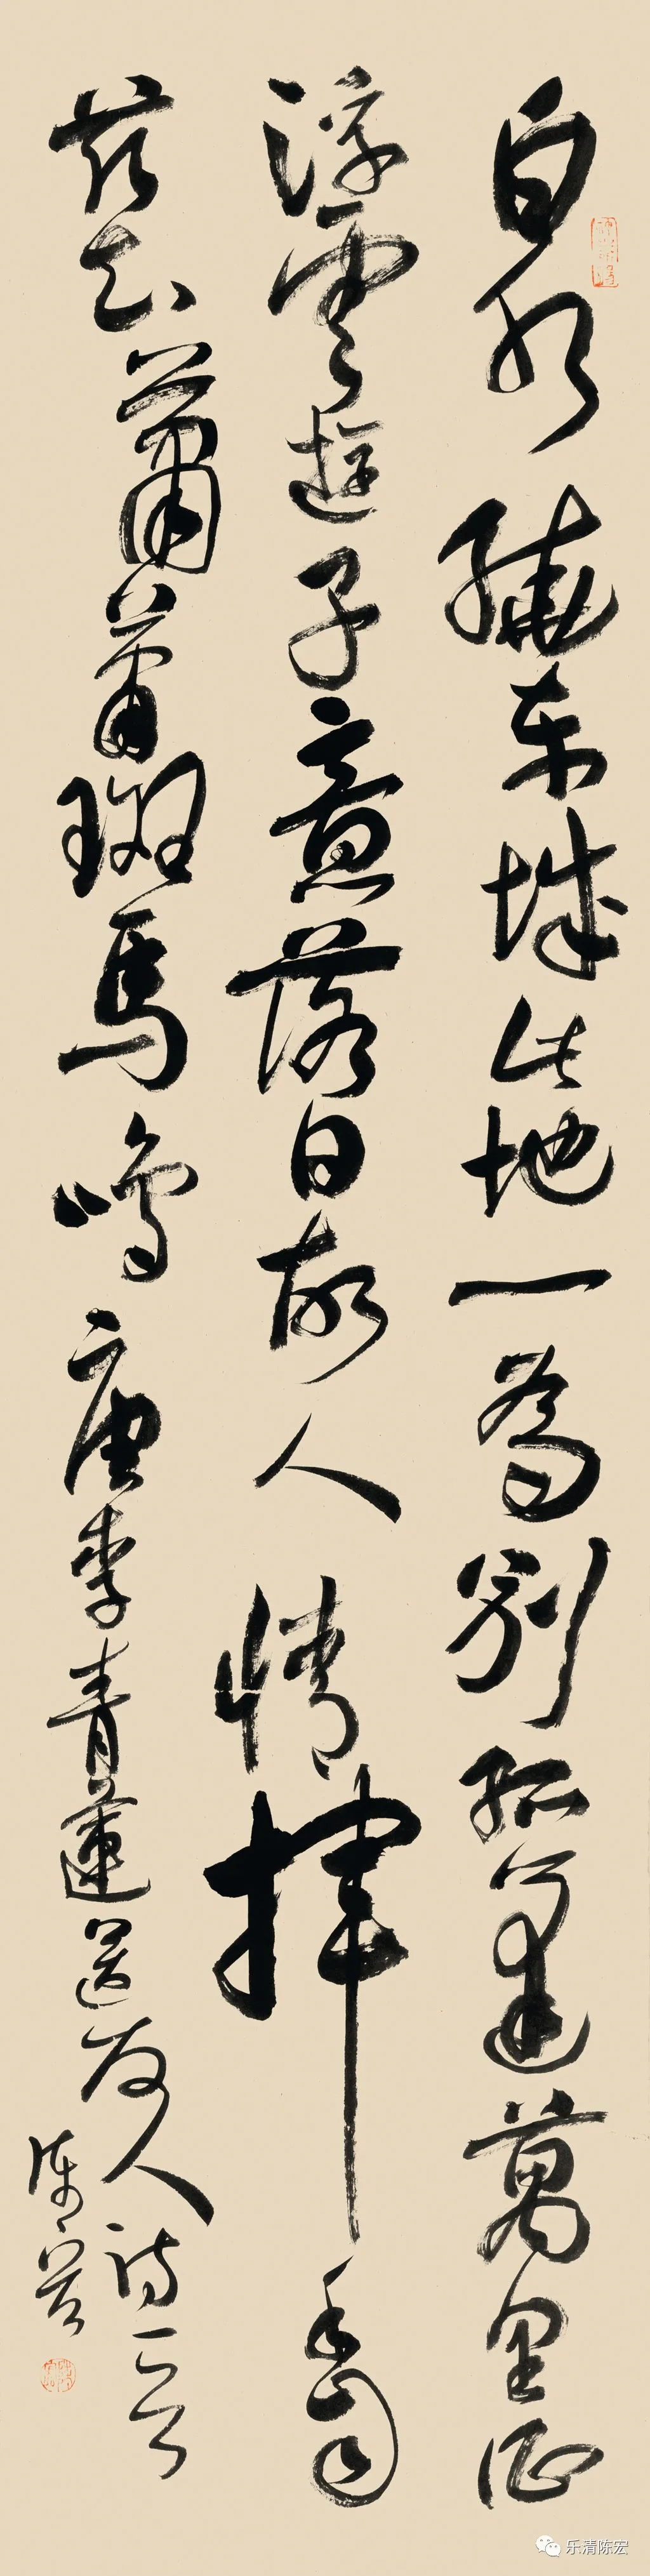 白水繞東城此地一為別孤蓬萬里征
浮雲遊子意落日故人情揮手自
茲去蕭蕭斑馬鳴唐李青蓮送友人詩一首
陳宏
乐清陈宏